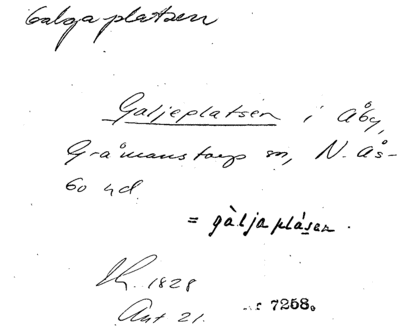 Galgaplatsen
Galjeplatsen i Åby,
Gråmanstorp sn, N. Ås-
bo hd.
= gàljaplásen.
1828
Ant 21.
7258.